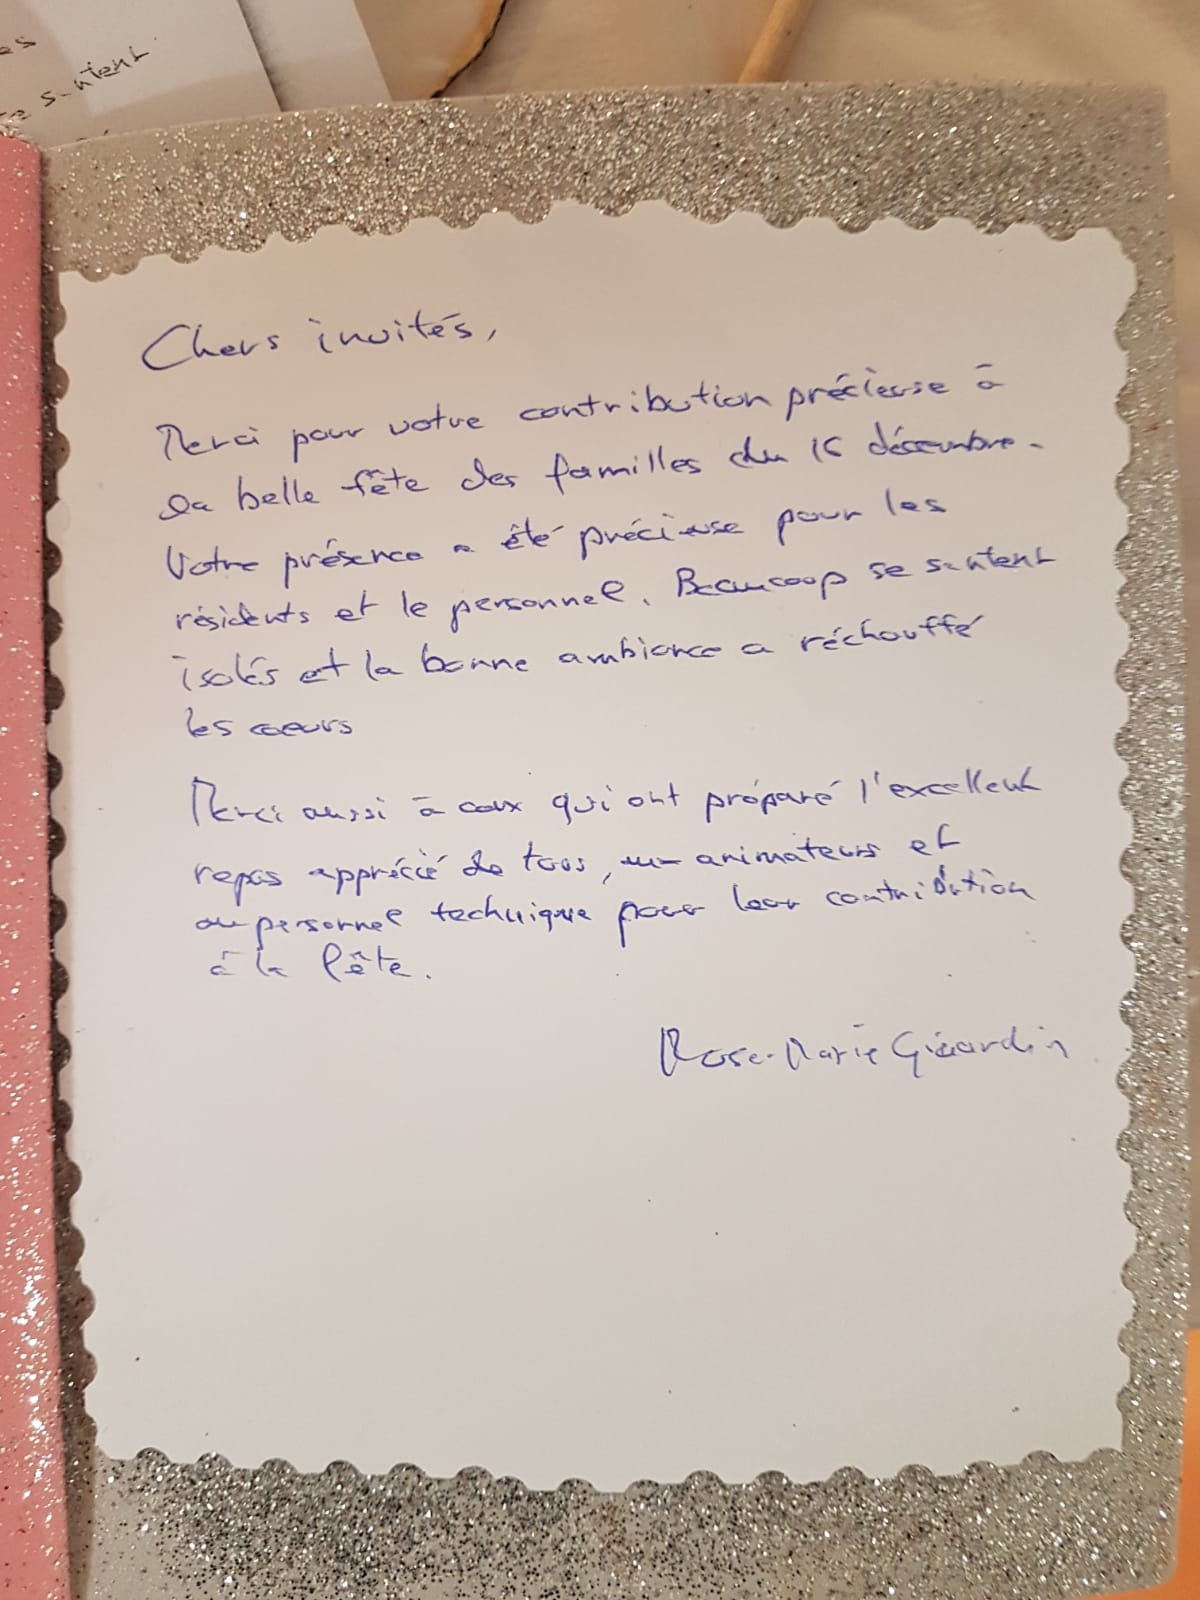 es
se sentent
Chers invités,
Merci pour votre contribution précieuse à
la belle fête des familles du 16 décembre.
Votre présence a été précieuse pour les
résidents et le personnel. Beaucoup se sentent
isolés et la bonne ambiance a réchouffé
les coeurs
Merci aussi à ceux qui ont préparé l'excellent
repas apprécié de tous, aux animateurs et
au personnel technique pour leur contribution
à la fête.
Rose-Marie Girardin